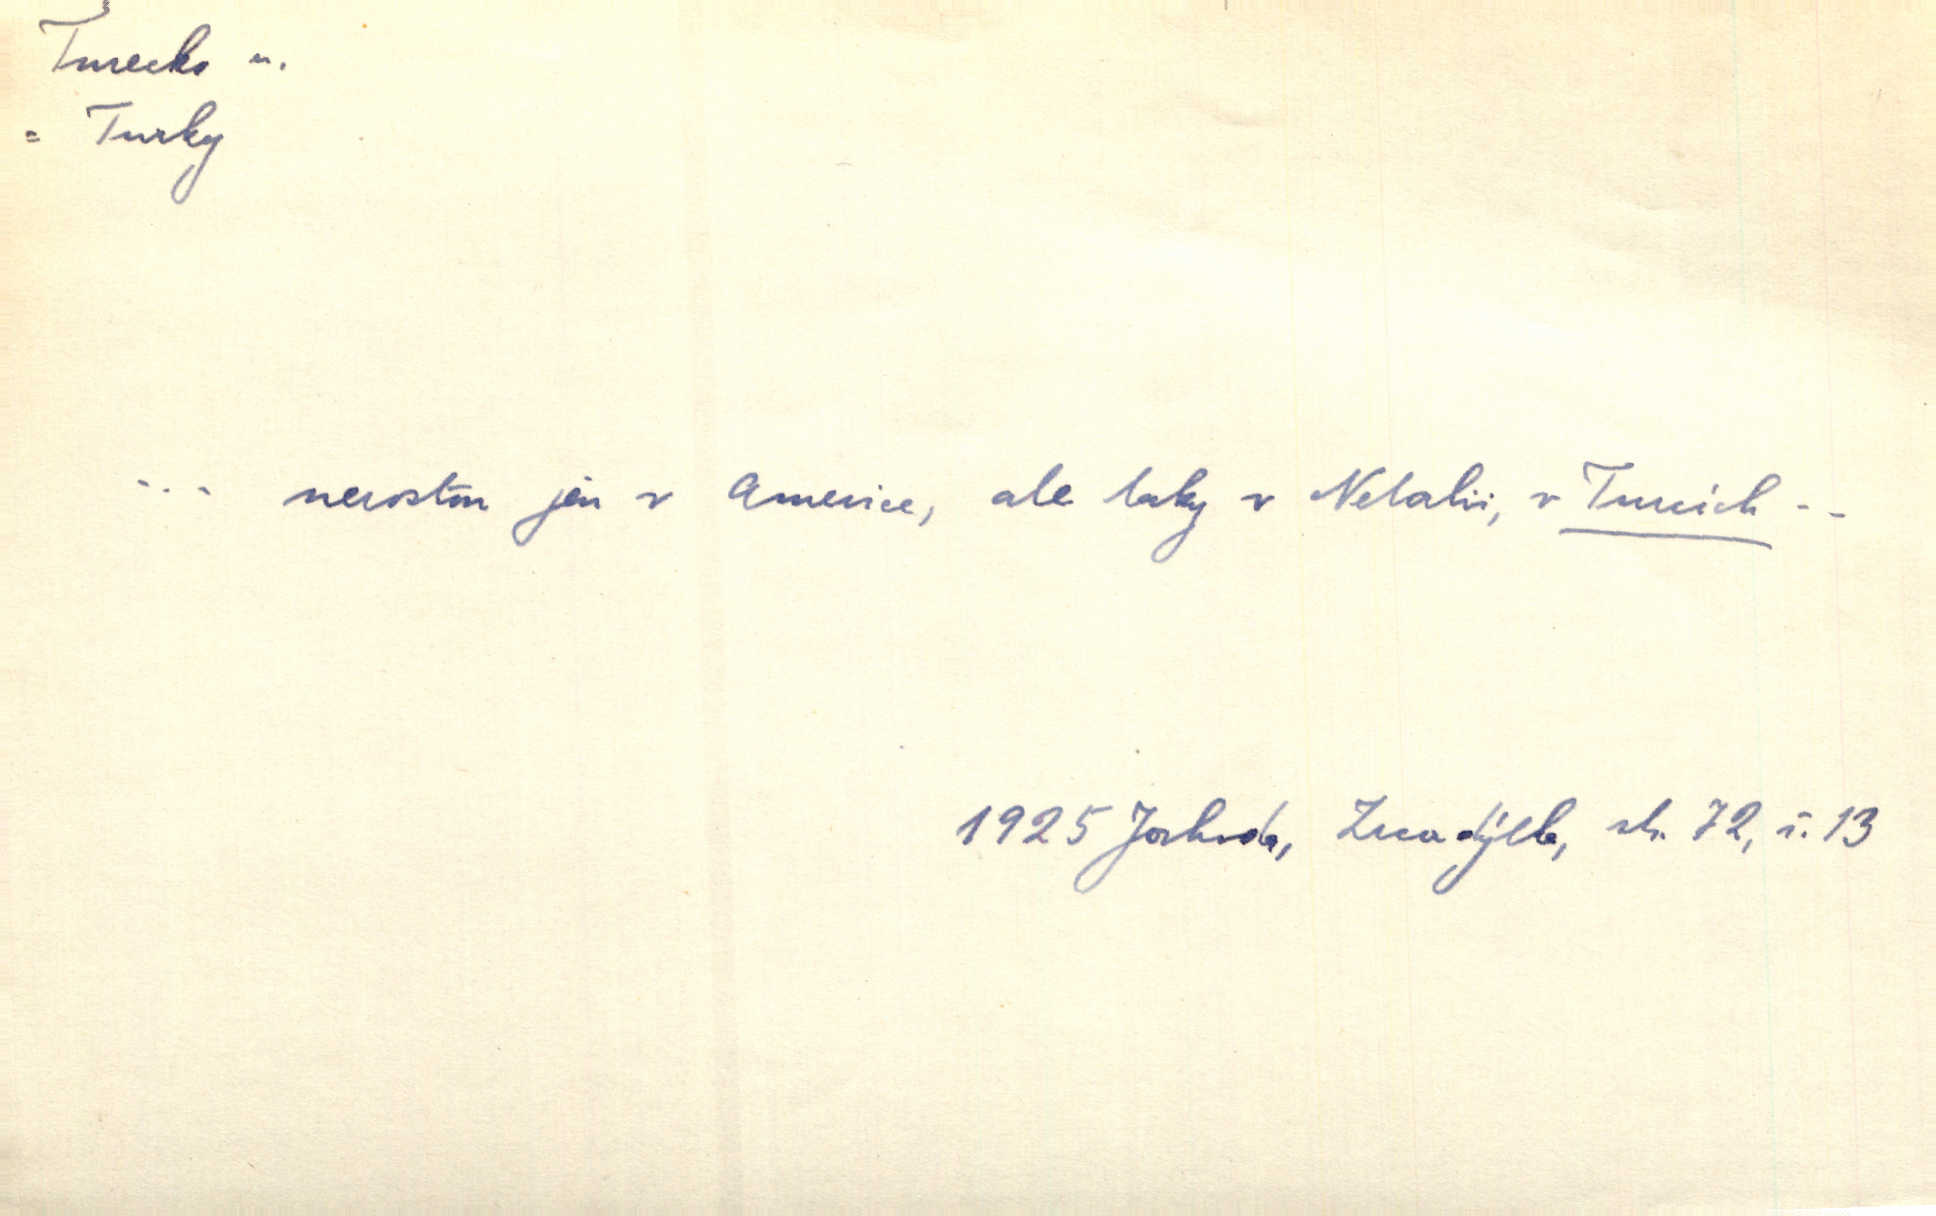 Turecko n.
= Turky
... nerostou jen v Americe, ale taky v Netalii, v Turcích ..
1925 Jahoda, Zrcadýlka, str. 72, ř. 13